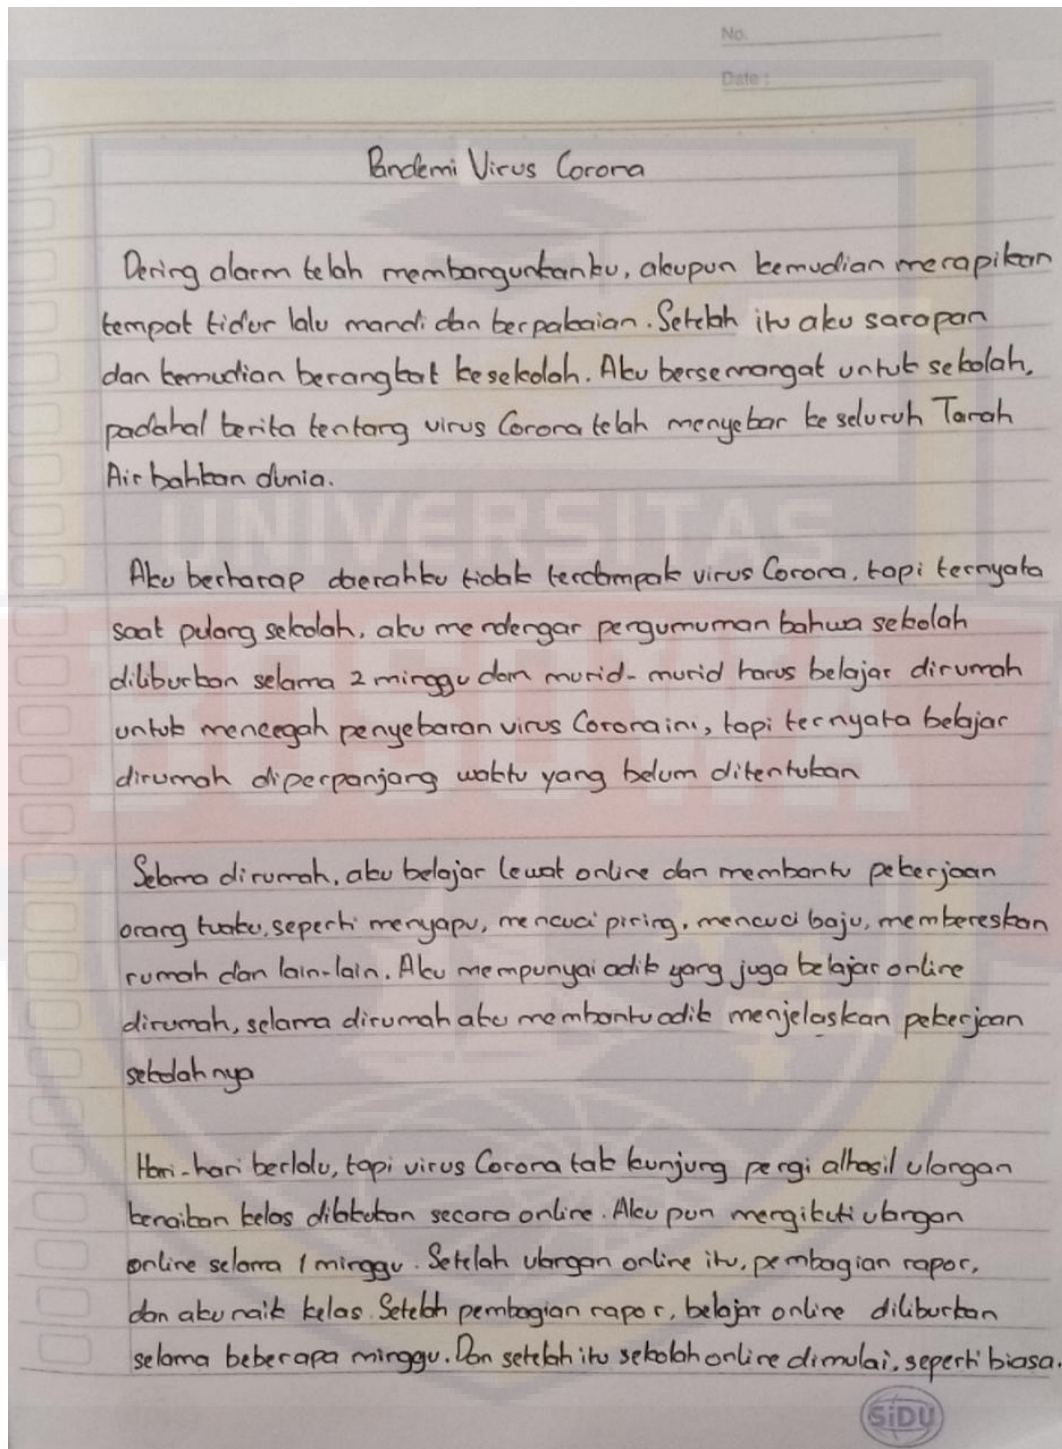 No.
Date :
Pandemi Virus Corona
Dering alarm telah membangunkanku, akupun kemudian merapikan
tempat tidur lalu mandi dan berpakaian. Setelah itu aku sarapan
dan kemudian berangkat kesekolah. Aku bersemangat untuk sekolah,
padahal berita tentang virus Corona telah menyebar ke seluruh Tanah
Air bahkan dunia.
UNIVERSITAS
Aku berharap daerahku tidak terdampak virus Corona, tapi ternyata
saat pulang sekolah, aku mendengar pengumuman bahwa sekolah
diliburkan selama 2 minggu dan murid-murid harus belajar dirumah
untuk mencegah penyebaran virus Corona ini, tapi ternyata belajar
dirumah diperpanjang waktu yang belum ditentukan
BOSOWA
Selama dirumah, aku belajar lewat online dan membantu pekerjaan
orang tuaku, seperti menyapu, mencuci piring, mencuci baju, membereskan
rumah dan lain-lain. Aku mempunyai adik yang juga belajar online
dirumah, selama dirumah aku membantu adik menjelaskan pekerjaan
sekolahnya
Hari-hari berlalu, tapi virus Corona tak kunjung pergi alhasil ulangan
kenaikan kelas dilakukan secara online. Aku pun mengikuti ulangan
online selama 1 minggu. Setelah ulangan online itu, pembagian rapor,
dan aku naik kelas. Setelah pembagian rapor, belajar online diliburkan
selama beberapa minggu. Dan setelah itu sekolah online dimulai, seperti biasa.
SiDU